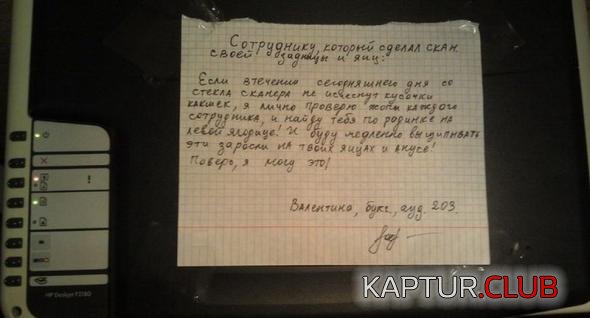 Сотруднику, который сделал скан
своей задницы и яиц:
Если втечении сегодняшнего дня со
стекла сканера не исчезнут кусочки
какшек, я лично проверю жопы каждого
сотрудника, и найду тебя по родинке на
левой ягодице! И буду медленно выщипывать
эти заросли на твоих яйцах и анусе!
Поверь, я могу это!
Валентина, бухг., ауд. 203.
HP Deskjet F2180
KAPTUR.CLUB